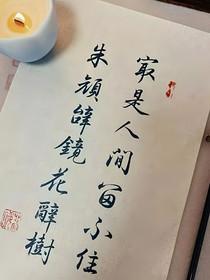 㝡是人間留不住
朱顏辭鏡花辭樹